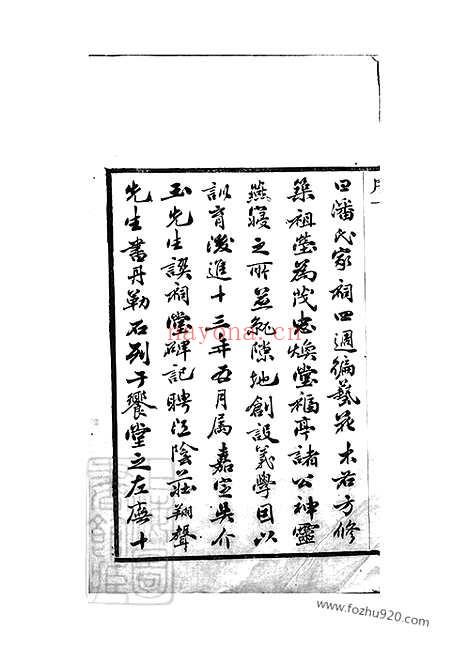 曰潘氏家祠四週編藝花木右方修
築祖瑩為茂忠煥堂福亭諸公神靈
燕寢之所並就隙地創設義學目以
訓育後進十三年五月屬嘉定吳介
玉先生譔祠堂碑記聘江陰莊翔聲
先生書丹勒石列于饗堂之左廡十
nayona.cn
www.fozhu920.com